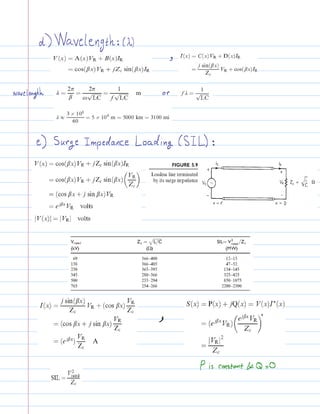 d) Wavelength: (λ)
V(x) = A(x)V_R + B(x)I_R
= cos(βx)V_R + jZ_c sin(βx)I_R
,
I(x) = C(x)V_R + D(x)I_R
= j sin(βx)/Z_c V_R + cos(βx)I_R
wavelength λ = 2π/β = 2π/(ω√LC) = 1/(f√LC) m or fλ = 1/√LC
λ ≈ 3 × 10^8/60 = 5 × 10^6 m = 5000 km = 3100 mi
e) Surge Impedance Loading (SIL):
V(x) = cos(βx)V_R + jZ_c sin(βx)I_R
= cos(βx)V_R + jZ_c sin(βx)(V_R/Z_c)
= (cos βx + j sin βx)V_R
= e^{jβx} V_R volts
|V(x)| = |V_R| volts
FIGURE 5.9
Lossless line terminated
by its surge impedance
V_rated (kV) Z_c = √L/C (Ω) SIL = V²_rated/Z_c (MW)
69 366–400 12–13
138 366–405 47–52
230 365–395 134–145
345 280–366 325–425
500 233–294 850–1075
765 254–266 2200–2300
I(x) = j sin(βx)/Z_c V_R + (cos βx) V_R/Z_c
= (cos βx + j sin βx) V_R/Z_c
= (e^{jβx}) V_R/Z_c A
,
S(x) = P(x) + jQ(x) = V(x)I*(x)
= (e^{jβx}V_R)(e^{jβx}V_R/Z_c)*
= |V_R|²/Z_c
P is constant & Q = 0.
SIL = V²_rated/Z_c